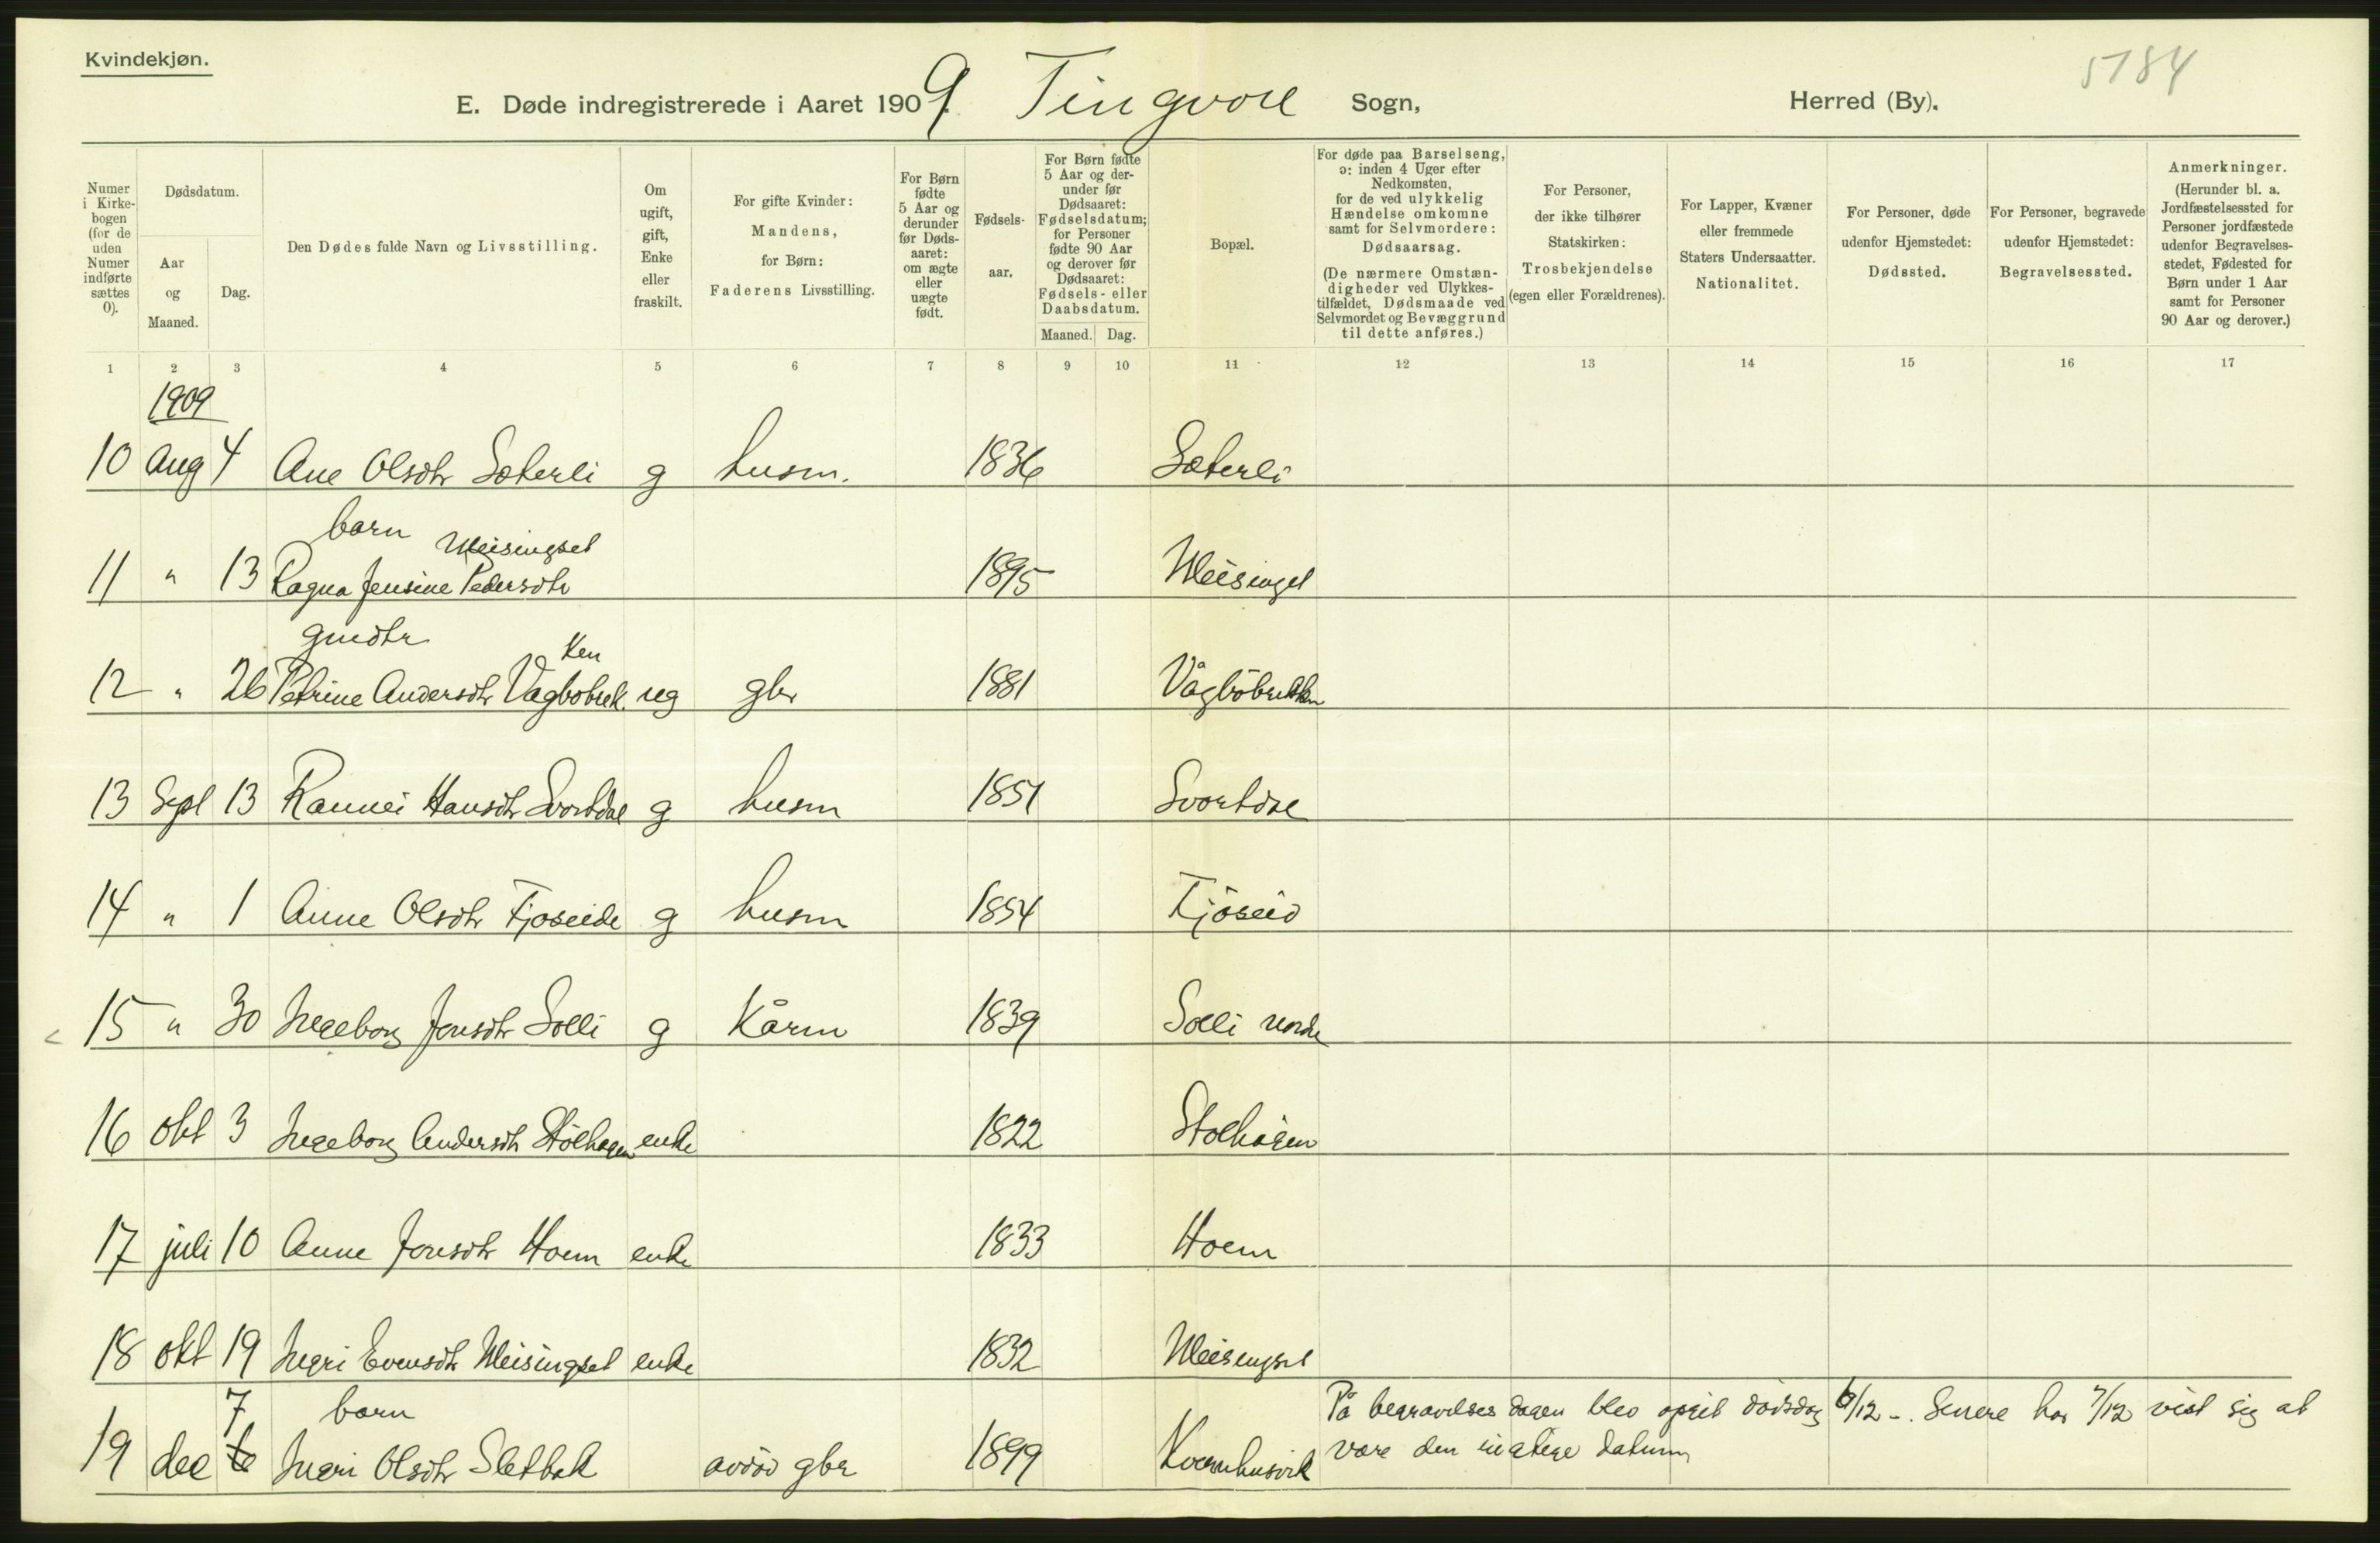 Kvindekjøn.
5184
E. Døde indregistrerede i Aaret 1909. Tingvoll Sogn, Herred (By).
Numer i Kirkebogen (for de uden Numer indførte sættes 0).
Dødsdatum.
Aar og Maaned.
Dag.
Den Dødes fulde Navn og Livsstilling.
Om ugift, gift, Enke eller fraskilt.
For gifte Kvinder: Mandens, for Børn: Faderens Livsstilling.
For Børn fødte 5 Aar og derunder før Dødsaaret: om ægte eller uægte født.
Fødselsaar.
For Børn fødte 5 Aar og derunder før Dødsaaret: Fødselsdatum; for Personer fødte 90 Aar og derover før Dødsaaret: Fødsels- eller Daabsdatum.
Maaned. Dag.
Bopæl.
For døde paa Barselseng, ɔ: inden 4 Uger efter Nedkomsten, for de ved ulykkelig Hændelse omkomne samt for Selvmordere: Dødsaarsag.
(De nærmere Omstændigheder ved Ulykkestilfældet, Dødsmaade ved Selvmordet og Bevæggrund til dette anføres.)
For Personer, der ikke tilhører Statskirken: Trosbekjendelse (egen eller Forældrenes).
For Lapper, Kvæner eller fremmede Staters Undersaatter. Nationalitet.
For Personer, døde udenfor Hjemstedet: Dødssted.
For Personer, begravede udenfor Hjemstedet: Begravelsessted.
Anmerkninger.
(Herunder bl. a. Jordfæstelsessted for Personer jordfæstede udenfor Begravelsesstedet, Fødested for Børn under 1 Aar samt for Personer 90 Aar og derover.)
1 2 3 4 5 6 7 8 9 10 11 12 13 14 15 16 17
1909
10 Aug 4 Ane Olsdtr Sæterli g husm. 1836 Sæterli
barn Meisingset
11 " 13 Ragna Jensine Pedersdtr 1895 Meisingset
gmdtr ken
12 " 26 Petrine Andersdtr Vågbøbrek. ug gbr 1881 Vågbøbrekken
13 Sept 13 Rannei Hansdtr Svortdal g husm 1851 Svortdal
14 " 1 Anne Olsdtr Fjøseide g husm 1854 Fjøseid
15 " 30 Ingeborg Jonsdtr Solli g Kårm 1839 Solli nordre
16 okt 3 Ingeborg Andersdtr Stølhagen enke 1822 Stølhagen
17 juli 10 Anne Jonsdtr Hoem enke 1833 Hoem
18 okt 19 Ingri Evensdtr Meisingset enke 1832 Meisingset
7 barn På begravelsesdagen blev opgit dødsdag 6/12 -. Senere har 7/12 vist sig at
19 dec 6 Ingri Olsdtr Sletbak avdød gbr 1899 Kvernhusvik være den rigtige datum